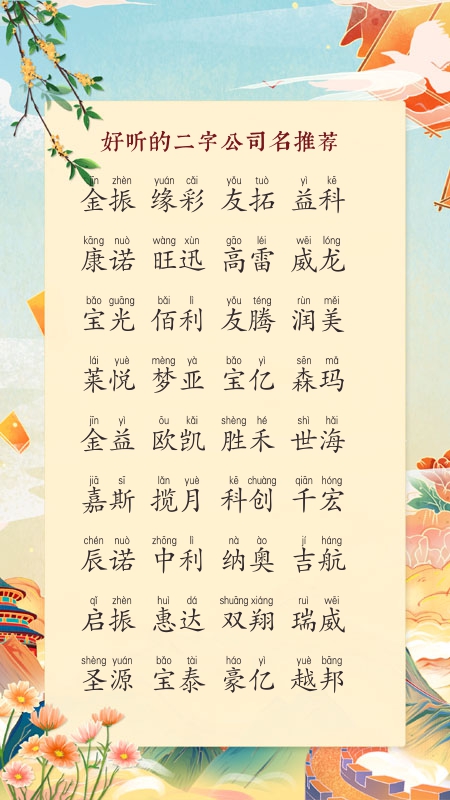 好听的二字公司名推荐
jīn zhèn yuán cǎi yǒu tuò yì kē
金振 缘彩 友拓 益科
kāng nuò wàng xùn gāo léi wēi lóng
康诺 旺迅 高雷 威龙
bǎo guāng bǎi lì yǒu téng rùn měi
宝光 佰利 友腾 润美
lái yuè mèng yà bǎo yì sēn mǎ
莱悦 梦亚 宝亿 森玛
jīn yì ōu kǎi shèng hé shì hǎi
金益 欧凯 胜禾 世海
jiā sī lǎn yuè kē chuàng qiān hóng
嘉斯 揽月 科创 千宏
chén nuò zhōng lì nà ào jí háng
辰诺 中利 纳奥 吉航
qǐ zhèn huì dá shuāng xiáng ruì wēi
启振 惠达 双翔 瑞威
shèng yuán bǎo tài háo yì yuè bāng
圣源 宝泰 豪亿 越邦